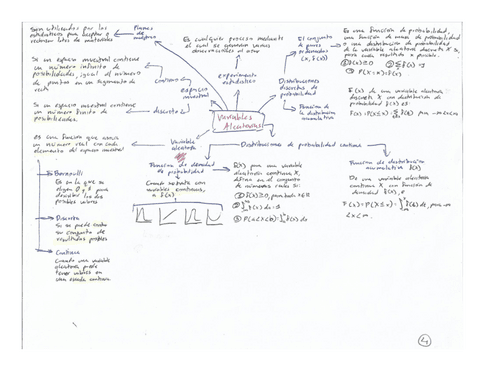 Son utilizados por los
estadísticos para aceptar o
rechazar lotes de materiales
Planes
de
muestreo
Es cualquier proceso mediante
el cual se generan varias
observaciones al azar
El conjunto
de pares
ordenados
(x, f(x))
Es una función de probabilidad,
una función de masa de probabilidad
o una distribución de probabilidad
de la variable aleatoria discreta X si,
para cada resultado x posible.
① f(x)≥0 ② Σ f(x) =1
③ P(X=x)=f(x)
Si un espacio muestral contiene
un número infinito de
posibilidades, igual al número
de puntos en un segmento de
recta
continuo
espacio
muestral
experimento
estadístico
Distribuciones
discretas de
probabilidad
Función de
la distribución
acumulativa
F(x) de una variable aleatoria
discreta X con distribución de
probabilidad f(x) es:
Si un espacio muestral contiene
un número finito de
posibilidades.
discreto
Variables
Aleatorias
es una función que asocia
un número real con cada
elemento del espacio muestral
Variable
aleatoria
Distribuciones de probabilidad continua
Bernoulli
Es en la que se
eligen 0 y 1 para
describir los dos
posibles valores
Discreta
Si se puede contar
su conjunto de
resultados posibles
Continua
Cuando una variable
aleatoria puede
tomar valores en
una escala continua
Función de densidad
de probabilidad
Cuando se trata con
variables continuas,
a f(x)
f(x) para una variable
aleatoria continua X,
definida en el conjunto
de números reales si:
① f(x)≥0, para toda x∈R
③ P(a<X<b)=∫ f(x) dx
Función de distribución
acumulativa F(x)
De una variable aleatoria
continua X con función de
densidad f(x), es
F(x)=P(X≤x)=∫ f(t) dt, para